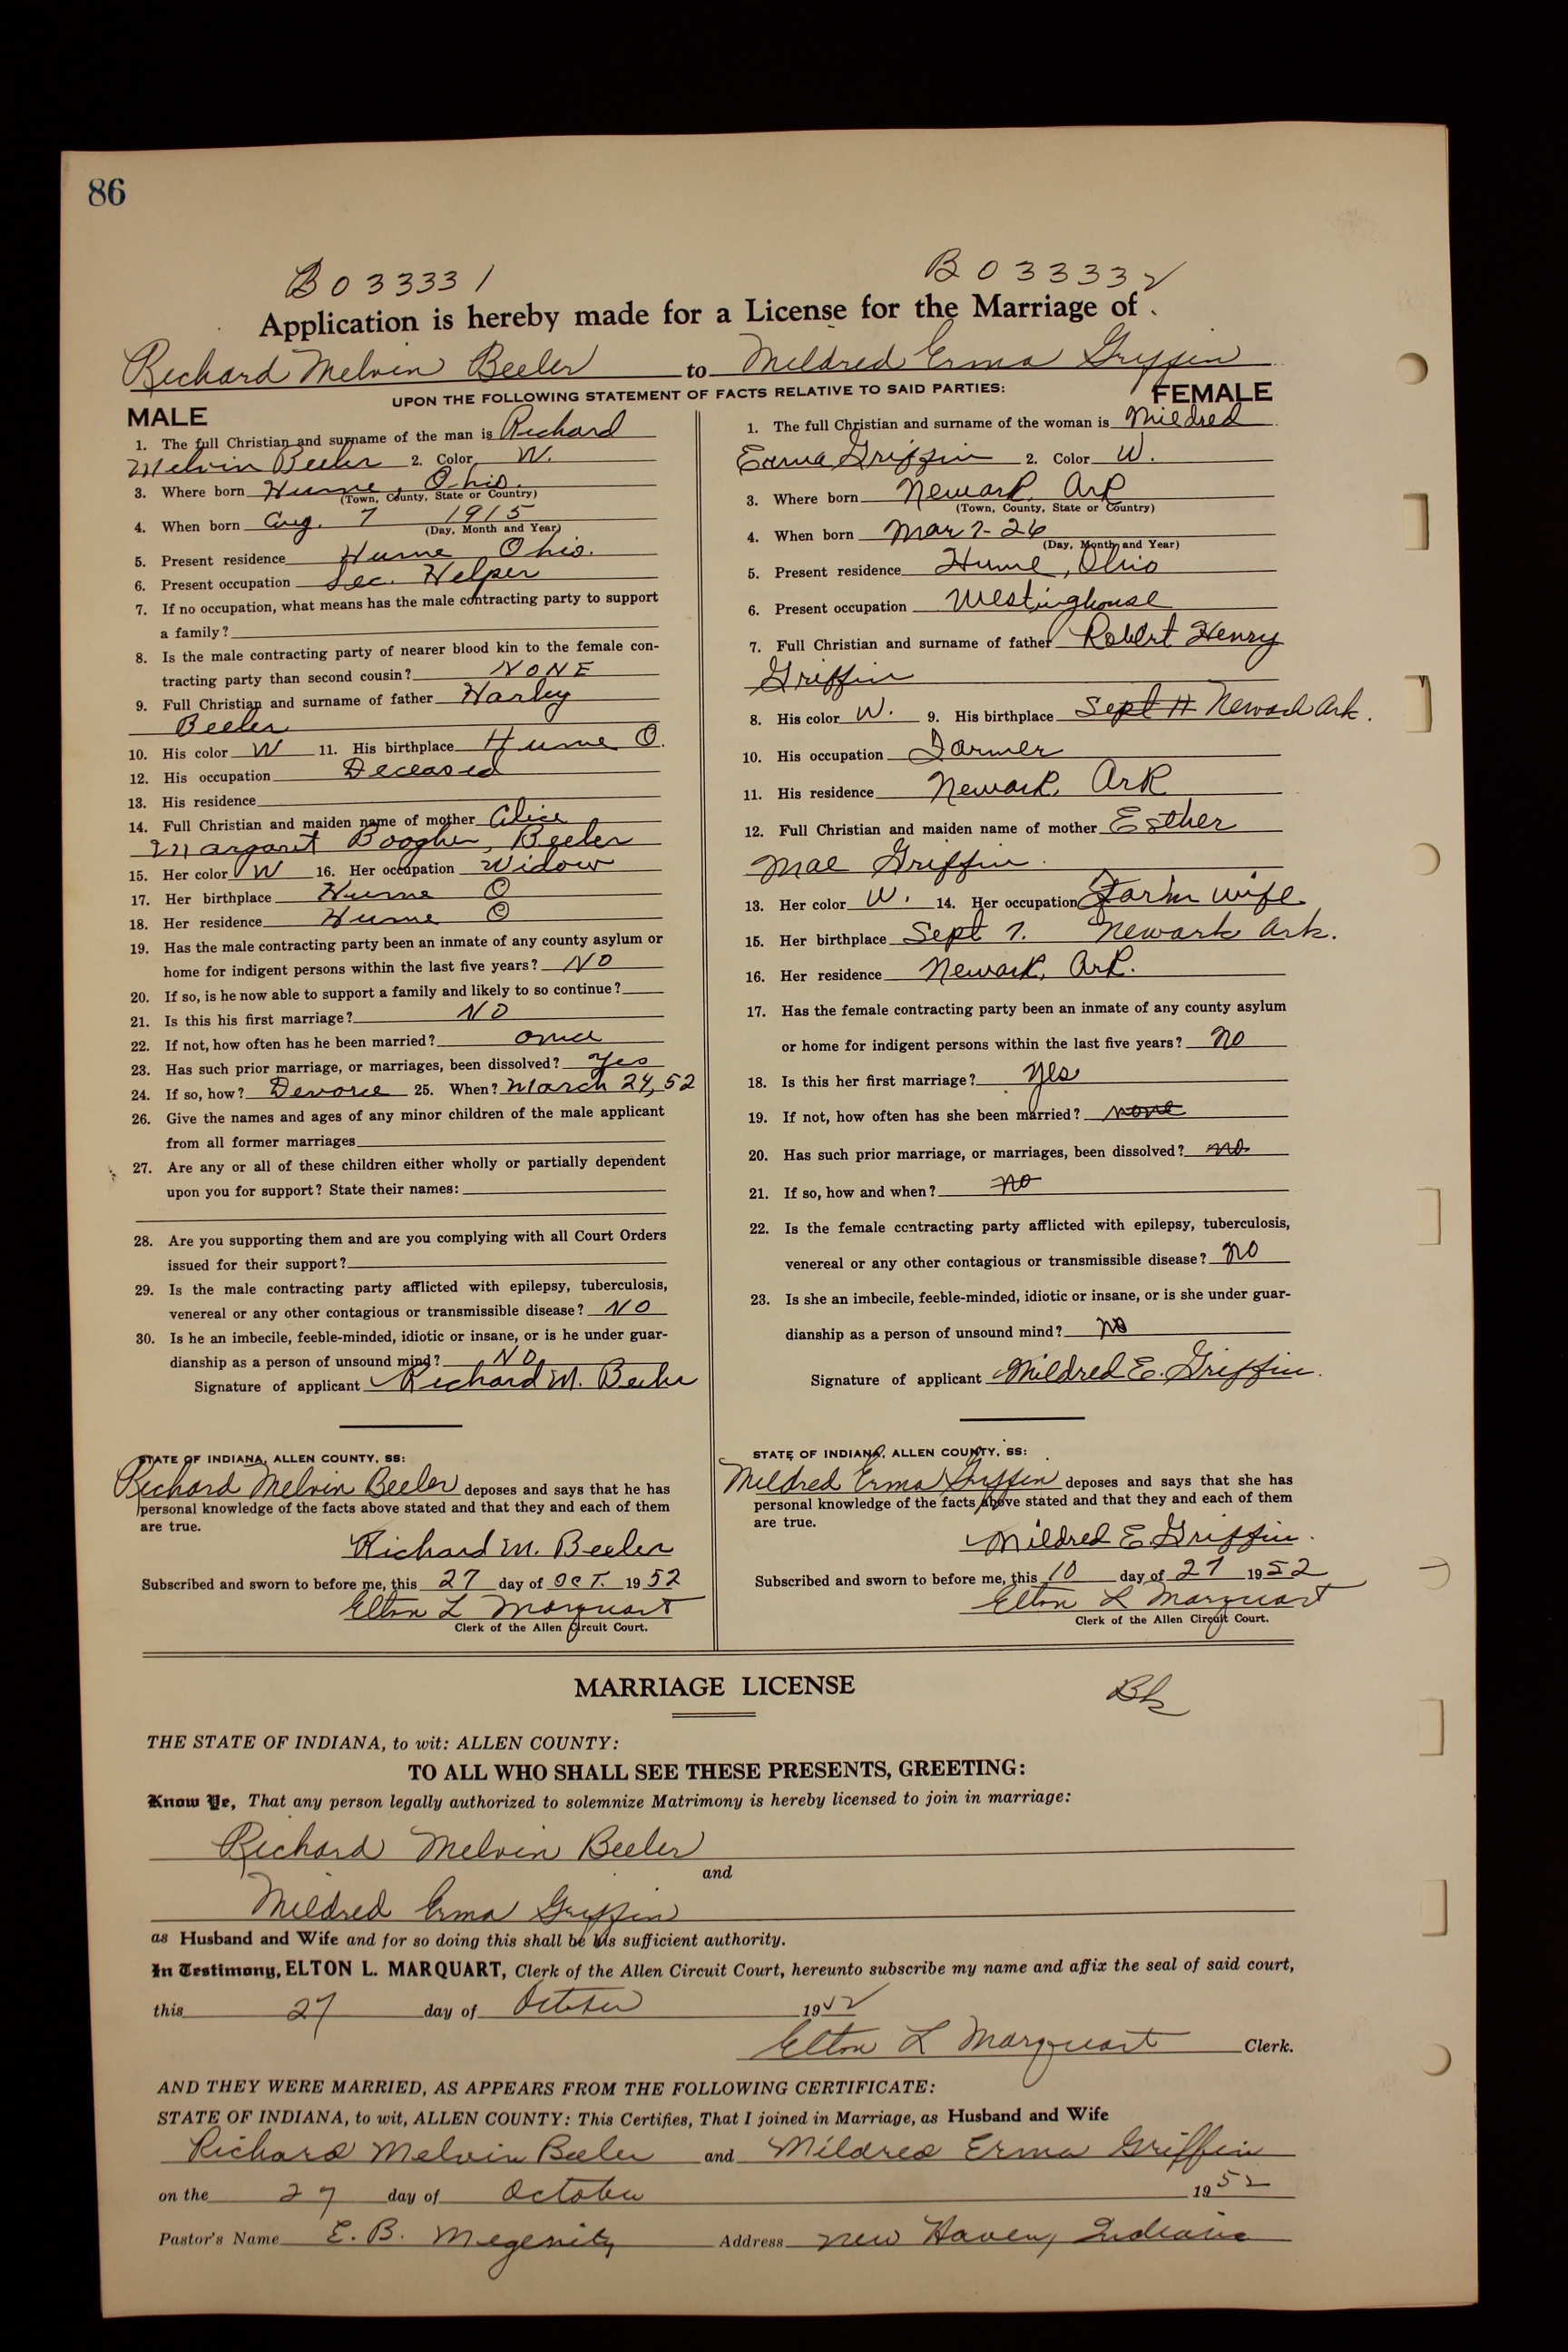 86
B033331 B033332
Application is hereby made for a License for the Marriage of
Richard Melvin Beeler to Mildred Erma Griffin
UPON THE FOLLOWING STATEMENT OF FACTS RELATIVE TO SAID PARTIES:
MALE
1. The full Christian and surname of the man is Richard
Melvin Beeler 2. Color W.
3. Where born Hume, Ohio.
(Town, County, State or Country)
4. When born Aug. 7 1915
(Day, Month and Year)
5. Present residence Hume Ohio.
6. Present occupation Sec. Helper
7. If no occupation, what means has the male contracting party to support
a family?
8. Is the male contracting party of nearer blood kin to the female con-
tracting party than second cousin? NONE
9. Full Christian and surname of father Harley
Beeler
10. His color W 11. His birthplace Hume O.
12. His occupation Deceased
13. His residence
14. Full Christian and maiden name of mother Alice
Margaret Boogher, Beeler
15. Her color W 16. Her occupation Widow
17. Her birthplace Hume O
18. Her residence Hume O
19. Has the male contracting party been an inmate of any county asylum or
home for indigent persons within the last five years? NO
20. If so, is he now able to support a family and likely to so continue?
21. Is this his first marriage? NO
22. If not, how often has he been married? once
23. Has such prior marriage, or marriages, been dissolved? yes
24. If so, how? Devorce 25. When? March 24, 52
26. Give the names and ages of any minor children of the male applicant
from all former marriages
27. Are any or all of these children either wholly or partially dependent
upon you for support? State their names:
28. Are you supporting them and are you complying with all Court Orders
issued for their support?
29. Is the male contracting party afflicted with epilepsy, tuberculosis,
venereal or any other contagious or transmissible disease? NO
30. Is he an imbecile, feeble-minded, idiotic or insane, or is he under guar-
dianship as a person of unsound mind? NO
Signature of applicant Richard M. Beeler
STATE OF INDIANA, ALLEN COUNTY, SS:
Richard Melvin Beeler deposes and says that he has
personal knowledge of the facts above stated and that they and each of them
are true.
Richard M. Beeler
Subscribed and sworn to before me, this 27 day of OCT. 1952
Elton L Marquart
Clerk of the Allen Circuit Court.
FEMALE
1. The full Christian and surname of the woman is Mildred
Erma Griffin 2. Color W.
3. Where born Newark, Ark
(Town, County, State or Country)
4. When born Mar 7-26
(Day, Month and Year)
5. Present residence Hume, Ohio
6. Present occupation Westinghouse
7. Full Christian and surname of father Robert Henry
Griffin
8. His color W. 9. His birthplace Sept 11 Newark Ark.
10. His occupation Farmer
11. His residence Newark, Ark
12. Full Christian and maiden name of mother Esther
Mae Griffin.
13. Her color W. 14. Her occupation Farm wife
15. Her birthplace Sept 7. Newark Ark.
16. Her residence Newark, Ark.
17. Has the female contracting party been an inmate of any county asylum
or home for indigent persons within the last five years? no
18. Is this her first marriage? yes
19. If not, how often has she been married? none
20. Has such prior marriage, or marriages, been dissolved? no
21. If so, how and when? no
22. Is the female contracting party afflicted with epilepsy, tuberculosis,
venereal or any other contagious or transmissible disease? no
23. Is she an imbecile, feeble-minded, idiotic or insane, or is she under guar-
dianship as a person of unsound mind? no
Signature of applicant Mildred E. Griffin.
STATE OF INDIANA, ALLEN COUNTY, SS:
Mildred Erma Griffin deposes and says that she has
personal knowledge of the facts above stated and that they and each of them
are true.
Mildred E. Griffin.
Subscribed and sworn to before me, this 10 day of 27 1952
Elton L Marquart
Clerk of the Allen Circuit Court.
MARRIAGE LICENSE
THE STATE OF INDIANA, to wit: ALLEN COUNTY:
TO ALL WHO SHALL SEE THESE PRESENTS, GREETING:
Know Ye, That any person legally authorized to solemnize Matrimony is hereby licensed to join in marriage:
Richard Melvin Beeler
and
Mildred Erma Griffin
as Husband and Wife and for so doing this shall be his sufficient authority.
In Testimony, ELTON L. MARQUART, Clerk of the Allen Circuit Court, hereunto subscribe my name and affix the seal of said court,
this 27 day of October 1952
Elton L Marquart Clerk.
AND THEY WERE MARRIED, AS APPEARS FROM THE FOLLOWING CERTIFICATE:
STATE OF INDIANA, to wit, ALLEN COUNTY: This Certifies, That I joined in Marriage, as Husband and Wife
Richard Melvin Beeler and Mildred Erma Griffin
on the 27 day of October 1952
Pastor's Name E. B. Megenity Address New Haven, Indiana